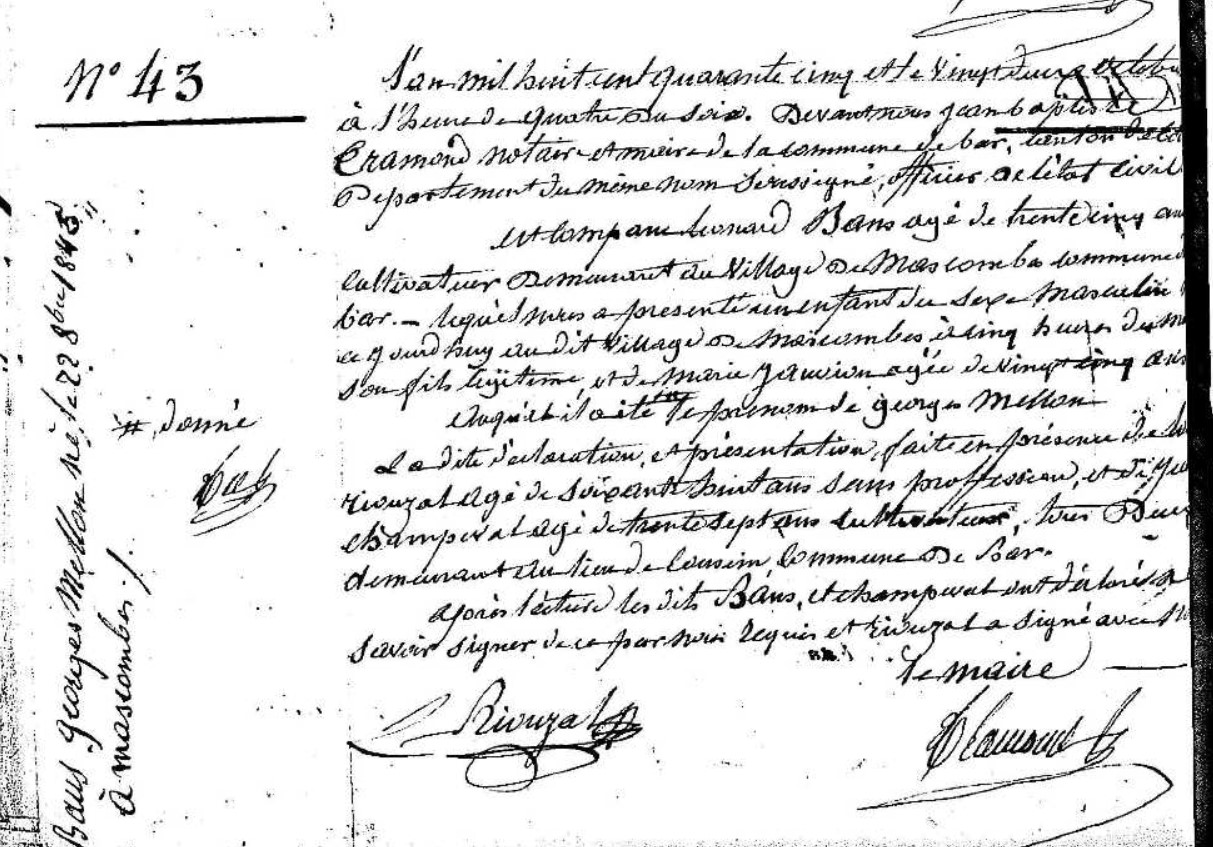 N° 43
Bans Georges Mellon né le 22 8bre 1845
à mascombes /.
# donné
L'an mil huit cent quarante cinq et le vingt deux octobre
à l'heure de quatre du soir. Devant nous jean baptiste
notaire et maire de la commune de bar, canton de
Departement du même nom soussigné, officier de l'état civil
est comparu leonard Bans agé de trente cinq an
cultivateur Demeurant au Village de Mascombes commune
bar. — lequel nous a presenté un enfant du sexe Masculin
ajourdhuy au dit Village de Mascombes à cinq heures du
son fils légitime, et de Marie agée de Vingt cinq ans
auquel il a été # le prenom de georges Mellon
La dite déclaration, et présentation, faite en présence de
riouzal agé de soixante huit ans sans proffession, et de
champeval agé de trente sept ans cultivateur, tous Deux
demeurant au lieu de commune De Bar.
après lecture les dits Bans, et champeval ont déclaré
savoir signer de ce par nous requis et riouzal a signé avec
le maire
Riouzal